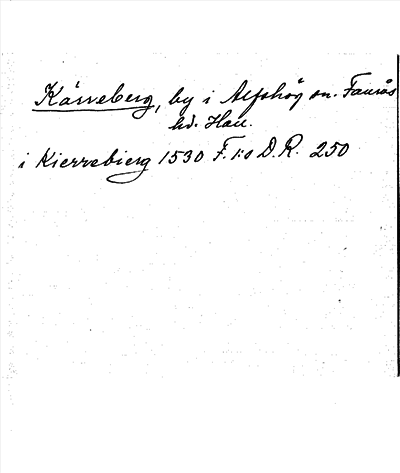 Kärreberg, by i Alfshög sn. Faurås
hd. Hall.
i Kierrebierg 1530 F. 1:o D.R. 250